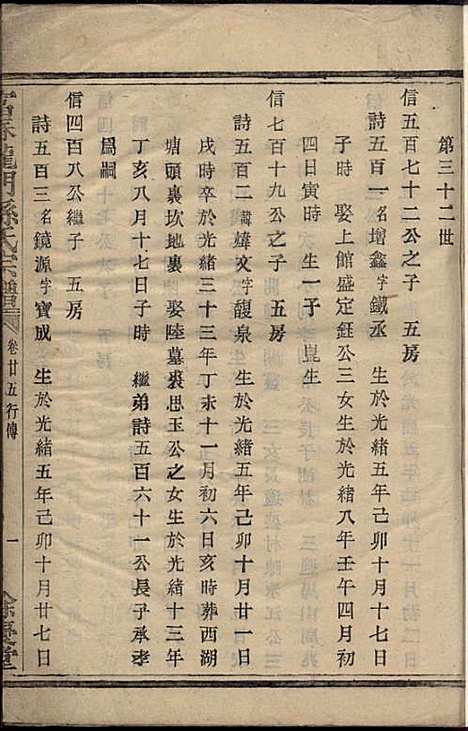 第三十二世
信五百七十二公之子 五房
詩五百一名增鑫字鐵丞 生於光緒五年己卯十月十七日
子時 娶上館盛定鈺公三女生於光緒八年壬午四月初
四日寅時 生一子 崑生
信七百十九公之子 五房
詩五百二諱煒文字馥泉 生於光緒五年己卯十月廿一日
戌時卒於光緒三十三年丁未十一月初六日亥時葬西湖
塘頭裏坎地裏 娶陸墓裘思玉公之女生於光緒十三年
丁亥八月十七日子時 繼弟詩五百六十一公長子承孝
爲嗣
信四百八公繼子 五房
詩五百三名鏡源字寶成 生於光緒五年己卯十月廿七日
富春龍門孫氏宗譜 卷廿五行傳 一 餘慶堂